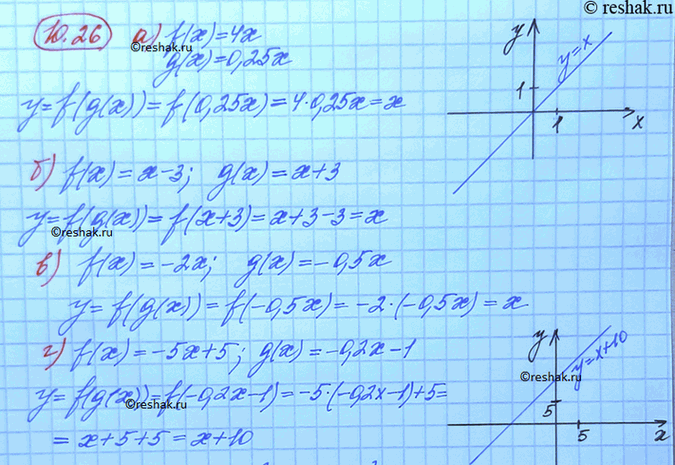 © reshak.ru
10.26 а) f(x)=4x
g(x)=0,25x
©reshak.ru
y=f(g(x))=f(0,25x)=4·0,25x=x
y
y=x
1
1
x
б) f(x)=x-3; g(x)=x+3
y=f(g(x))=f(x+3)=x+3-3=x
©reshak.ru
в) f(x)=-2x; g(x)=-0,5x
y=f(g(x))=f(-0,5x)=-2·(-0,5x)=x
г) f(x)=-5x+5; g(x)=-0,2x-1
y=f(g(x))=f(-0,2x-1)=-5·(-0,2x-1)+5=
©reshak.ru
=x+5+5=x+10
y
y=x+10
©reshak.ru
5
5
x